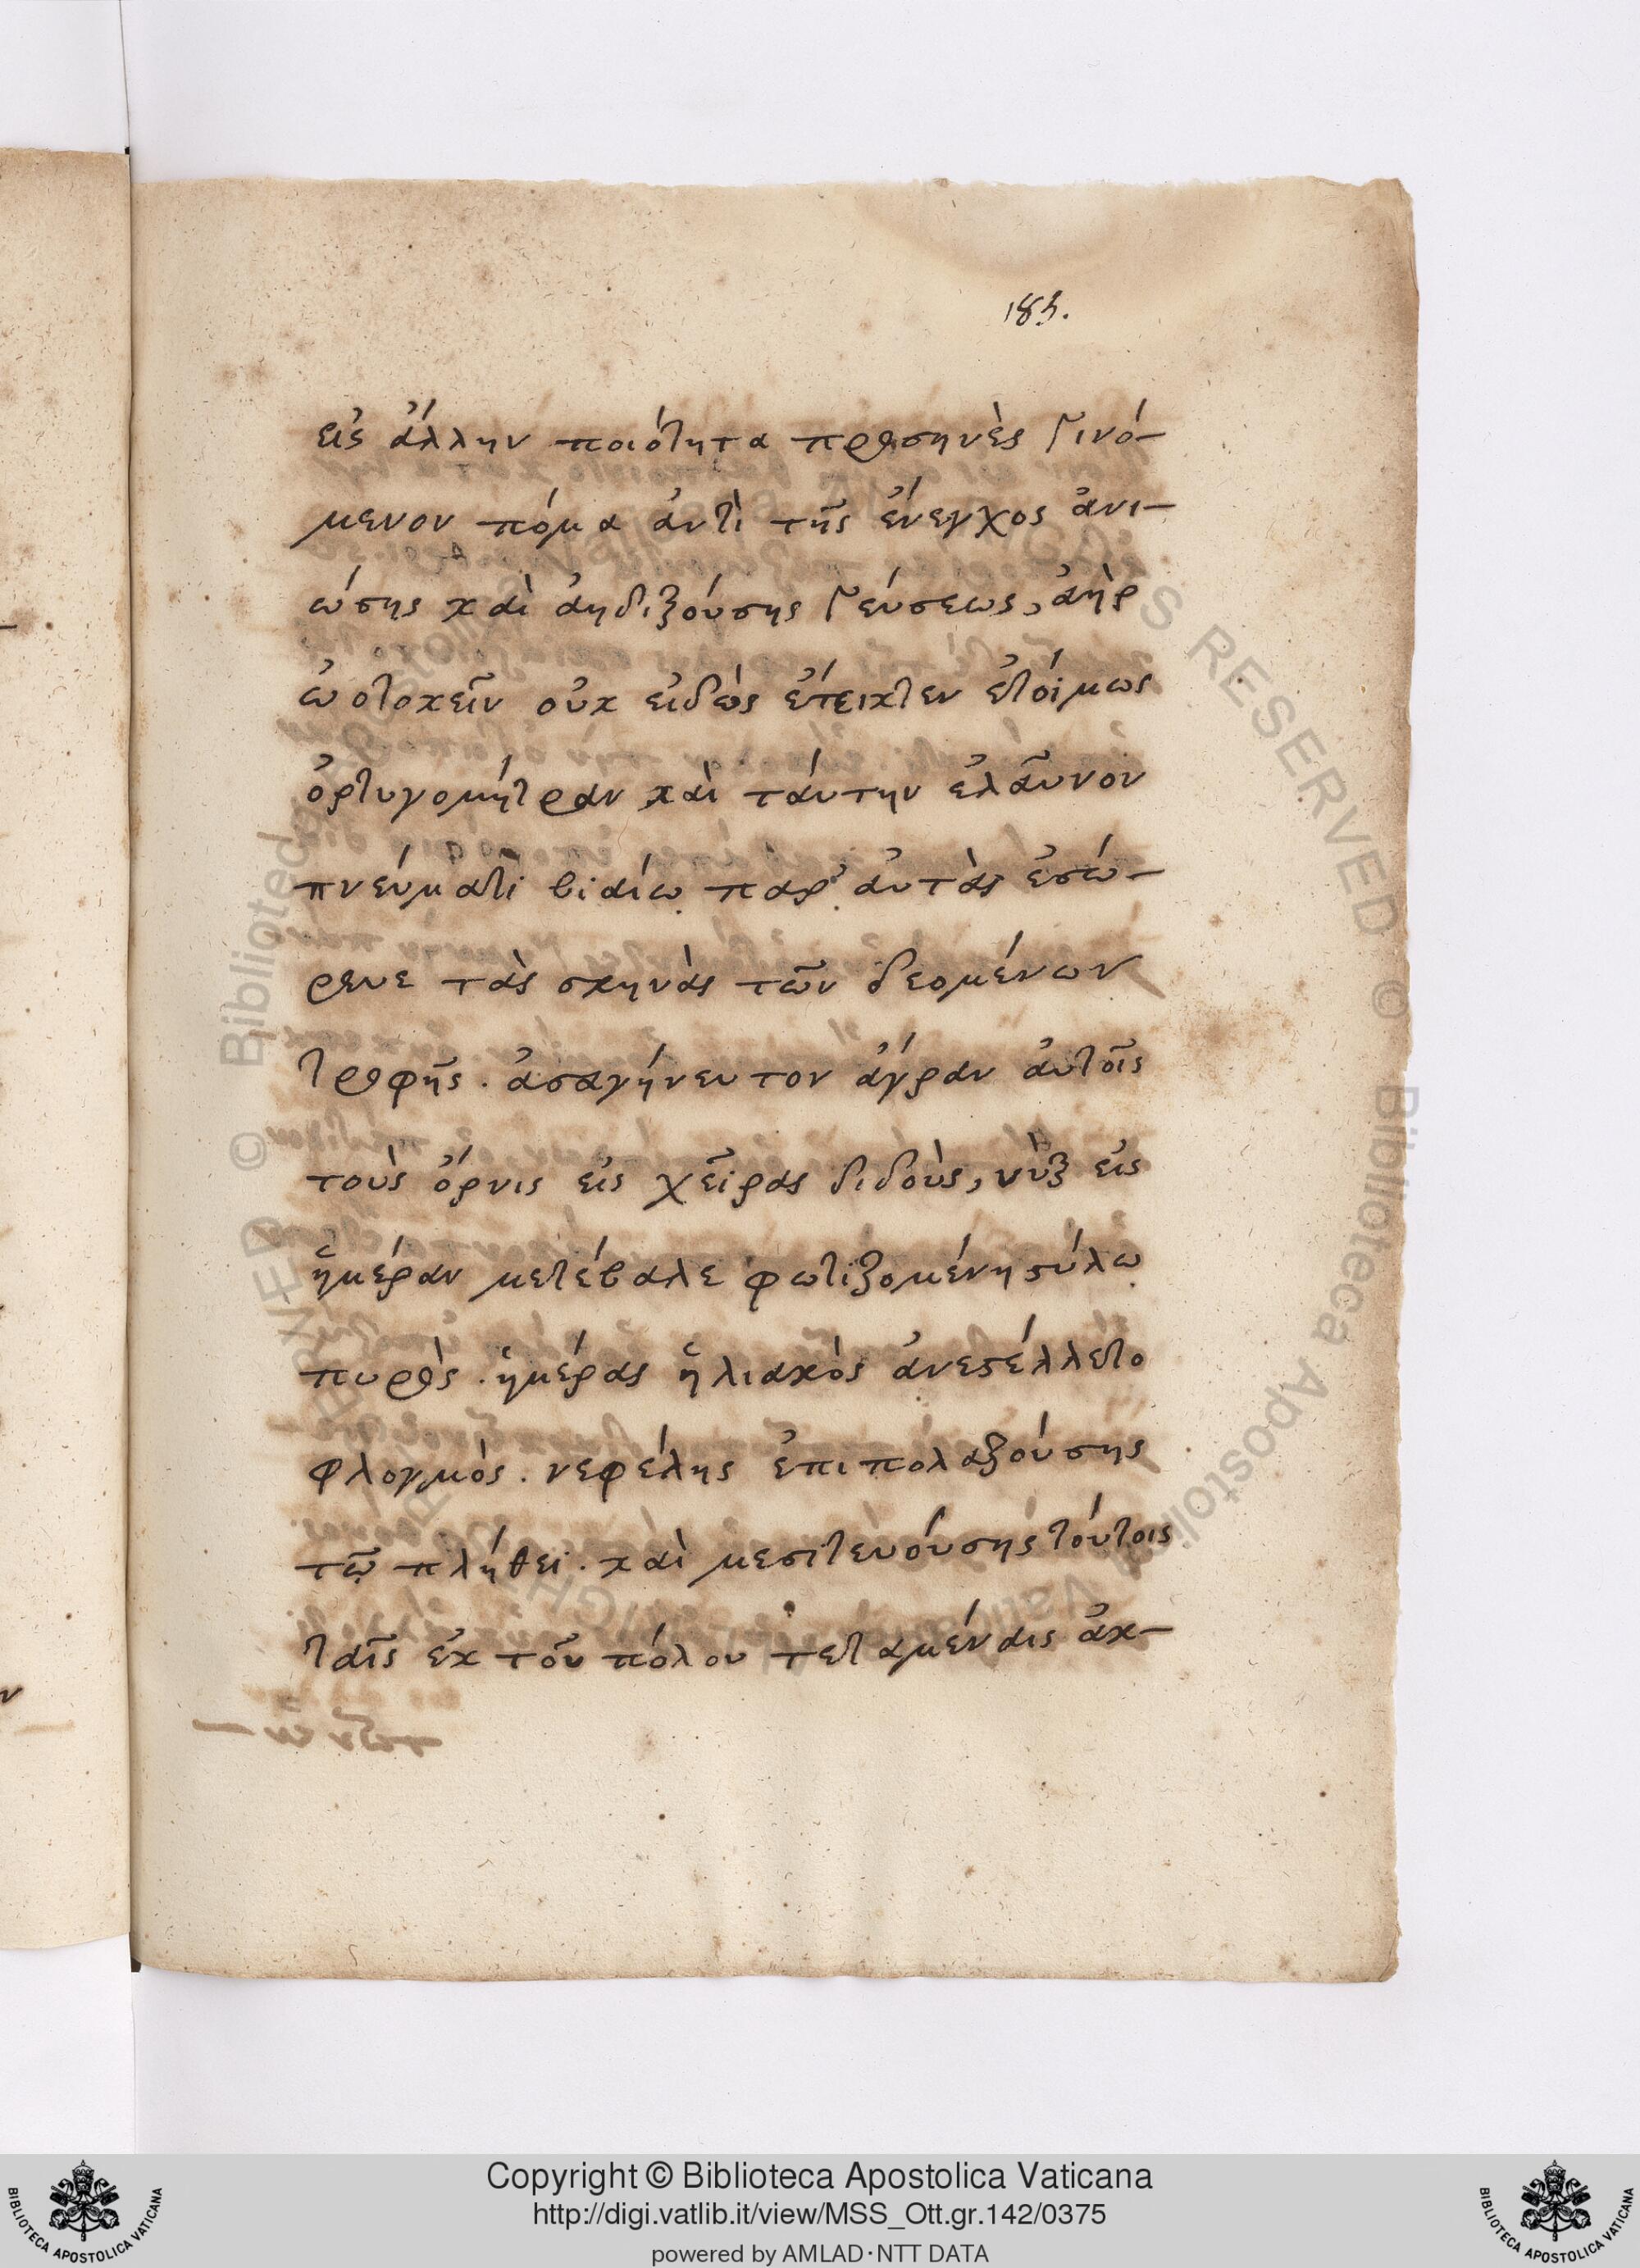 183.
εἰς ἄλλην ποιότητα προσηνὲς γινό-
μενον πόμα ἀντὶ τῆς ἔνεγχος ἀνι-
ώσης καὶ ἀηδιζούσης γεύσεως, ἀὴρ
ὠοτοκεῖν οὐκ εἰδὼς ἔτεικτεν ἑτοίμως
ὀρτυγομήτραν καὶ ταύτην ἐλαῦνον
πνεύματι βιαίῳ παρ' ἀυτὰς ἐσώ-
ρευε τὰς σκηνὰς τῶν δεομένων
τροφῆς. ἀσαγήνευτον ἄγραν ἀυτοῖς
τοὺς ὄρνις εἰς χεῖρας διδοὺς, νὺξ εἰς
ἡμέραν μετέβαλε φωτιζομένη στύλῳ
πυρὸς. ἡμέρας ἡλιακὸς ἀνεστέλλετο
φλογμὸς. νεφέλης ἐπιπολαζούσης
τῷ πλήθει. καὶ μεσιτευούσης τούτοις
ταῖς ἐκ τοῦ πόλου τεταμέναις ἀκ-
Copyright © Biblioteca Apostolica Vaticana
http://digi.vatlib.it/view/MSS_Ott.gr.142/0375
powered by AMLAD·NTT DATA
BIBLIOTECA APOSTOLICA VATICANA
BIBLIOTECA APOSTOLICA VATICANA